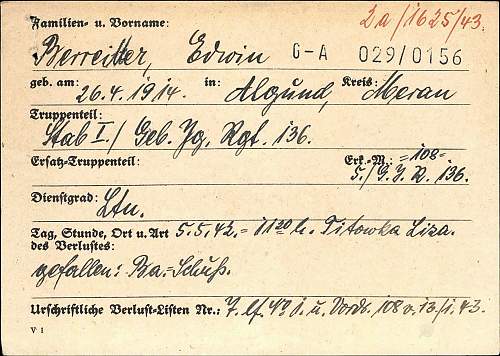 Familien- u. Vorname: 2a/1625/43.
Berreitter, Edwin G-A 029/0156
geb. am: in: Kreis:
26.4.1914. Algund, Meran
Truppenteil:
Stab I./Geb. Jg. Rgt. 136.
Ersatz-Truppenteil: Erk.-M.: =108=
5./G.J.R. 136.
Dienstgrad: Ltn.
Tag, Stunde, Ort u. Art 5.5.42.= 1120 h. Titowka Liza.
des Verlustes:
gefallen: Ba.-Schuß.
Urschriftliche Verlust-Listen Nr.: 7. u. 108 v. 13/1.43.
V 1